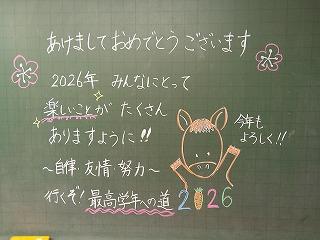 あけましておめでとうございます
2026年 みんなにとって
楽しいことが たくさん
ありますように!!
今年も
よろしく!!
～自律・友情・努力～
行くぞ! 最高学年への道
2026